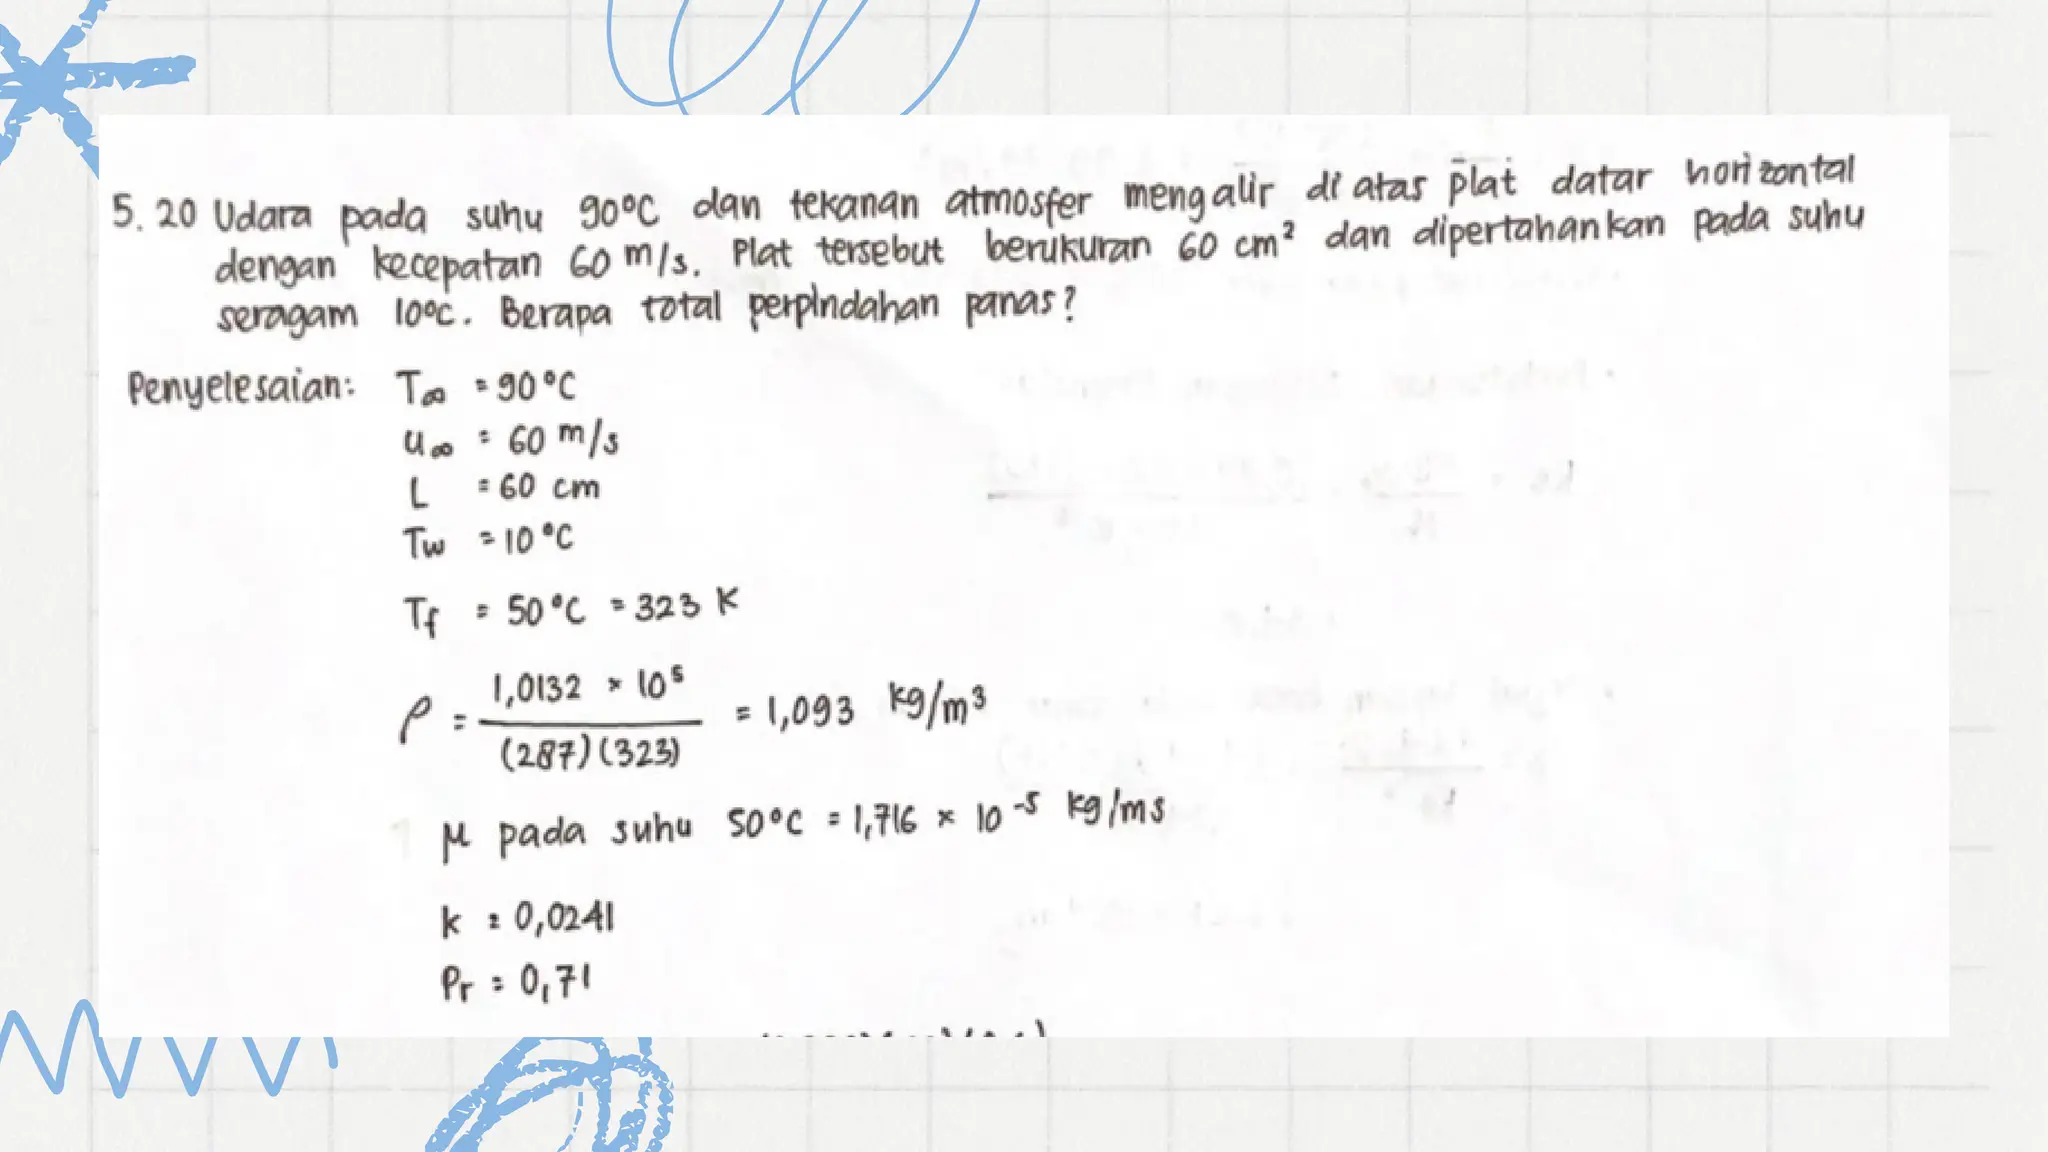 5.20 Udara pada suhu 90°C dan tekanan atmosfer mengalir di atas plat datar horizontal
dengan kecepatan 60 m/s. Plat tersebut berukuran 60 cm² dan dipertahankan pada suhu
seragam 10°C. Berapa total perpindahan panas?
Penyelesaian: T∞ = 90°C
u∞ = 60 m/s
L = 60 cm
Tw = 10°C
Tf = 50°C = 323 K
ρ = 1,0132 × 10⁵ / (287)(323) = 1,093 kg/m³
μ pada suhu 50°C = 1,716 × 10⁻⁵ kg/ms
k = 0,0241
Pr = 0,71